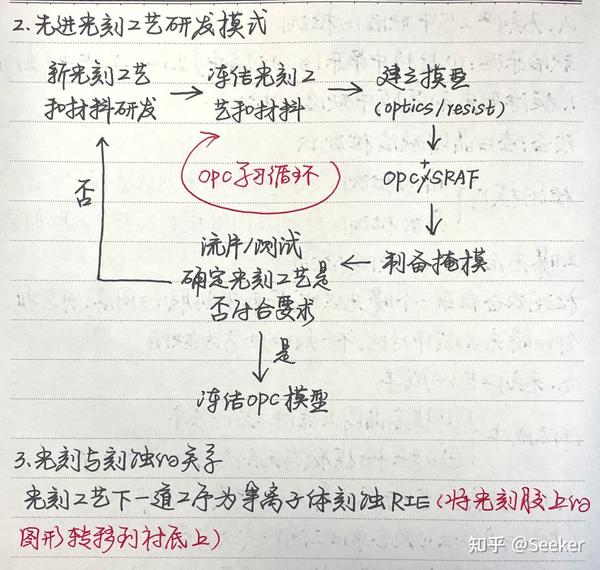 2.先进光刻工艺研发模式
新光刻工艺
和材料研发
冻结光刻工
艺和材料
建立模型
(optics/resist)
OPC+SRAF
制备掩模
OPC学习循环
流片/测试
确定光刻工艺是
否付合要求
否
是
冻结OPC模型
3.光刻与刻蚀的关系
光刻工艺下一道工序为等离子体刻蚀RIE(将光刻胶上的
图形转移到衬底上)
知乎 @Seeker